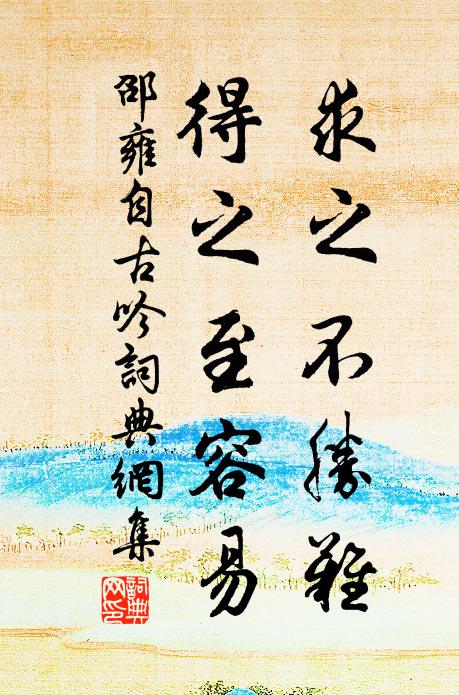 求之不勝難
得之至容易
邵雍自古吟詞典網集